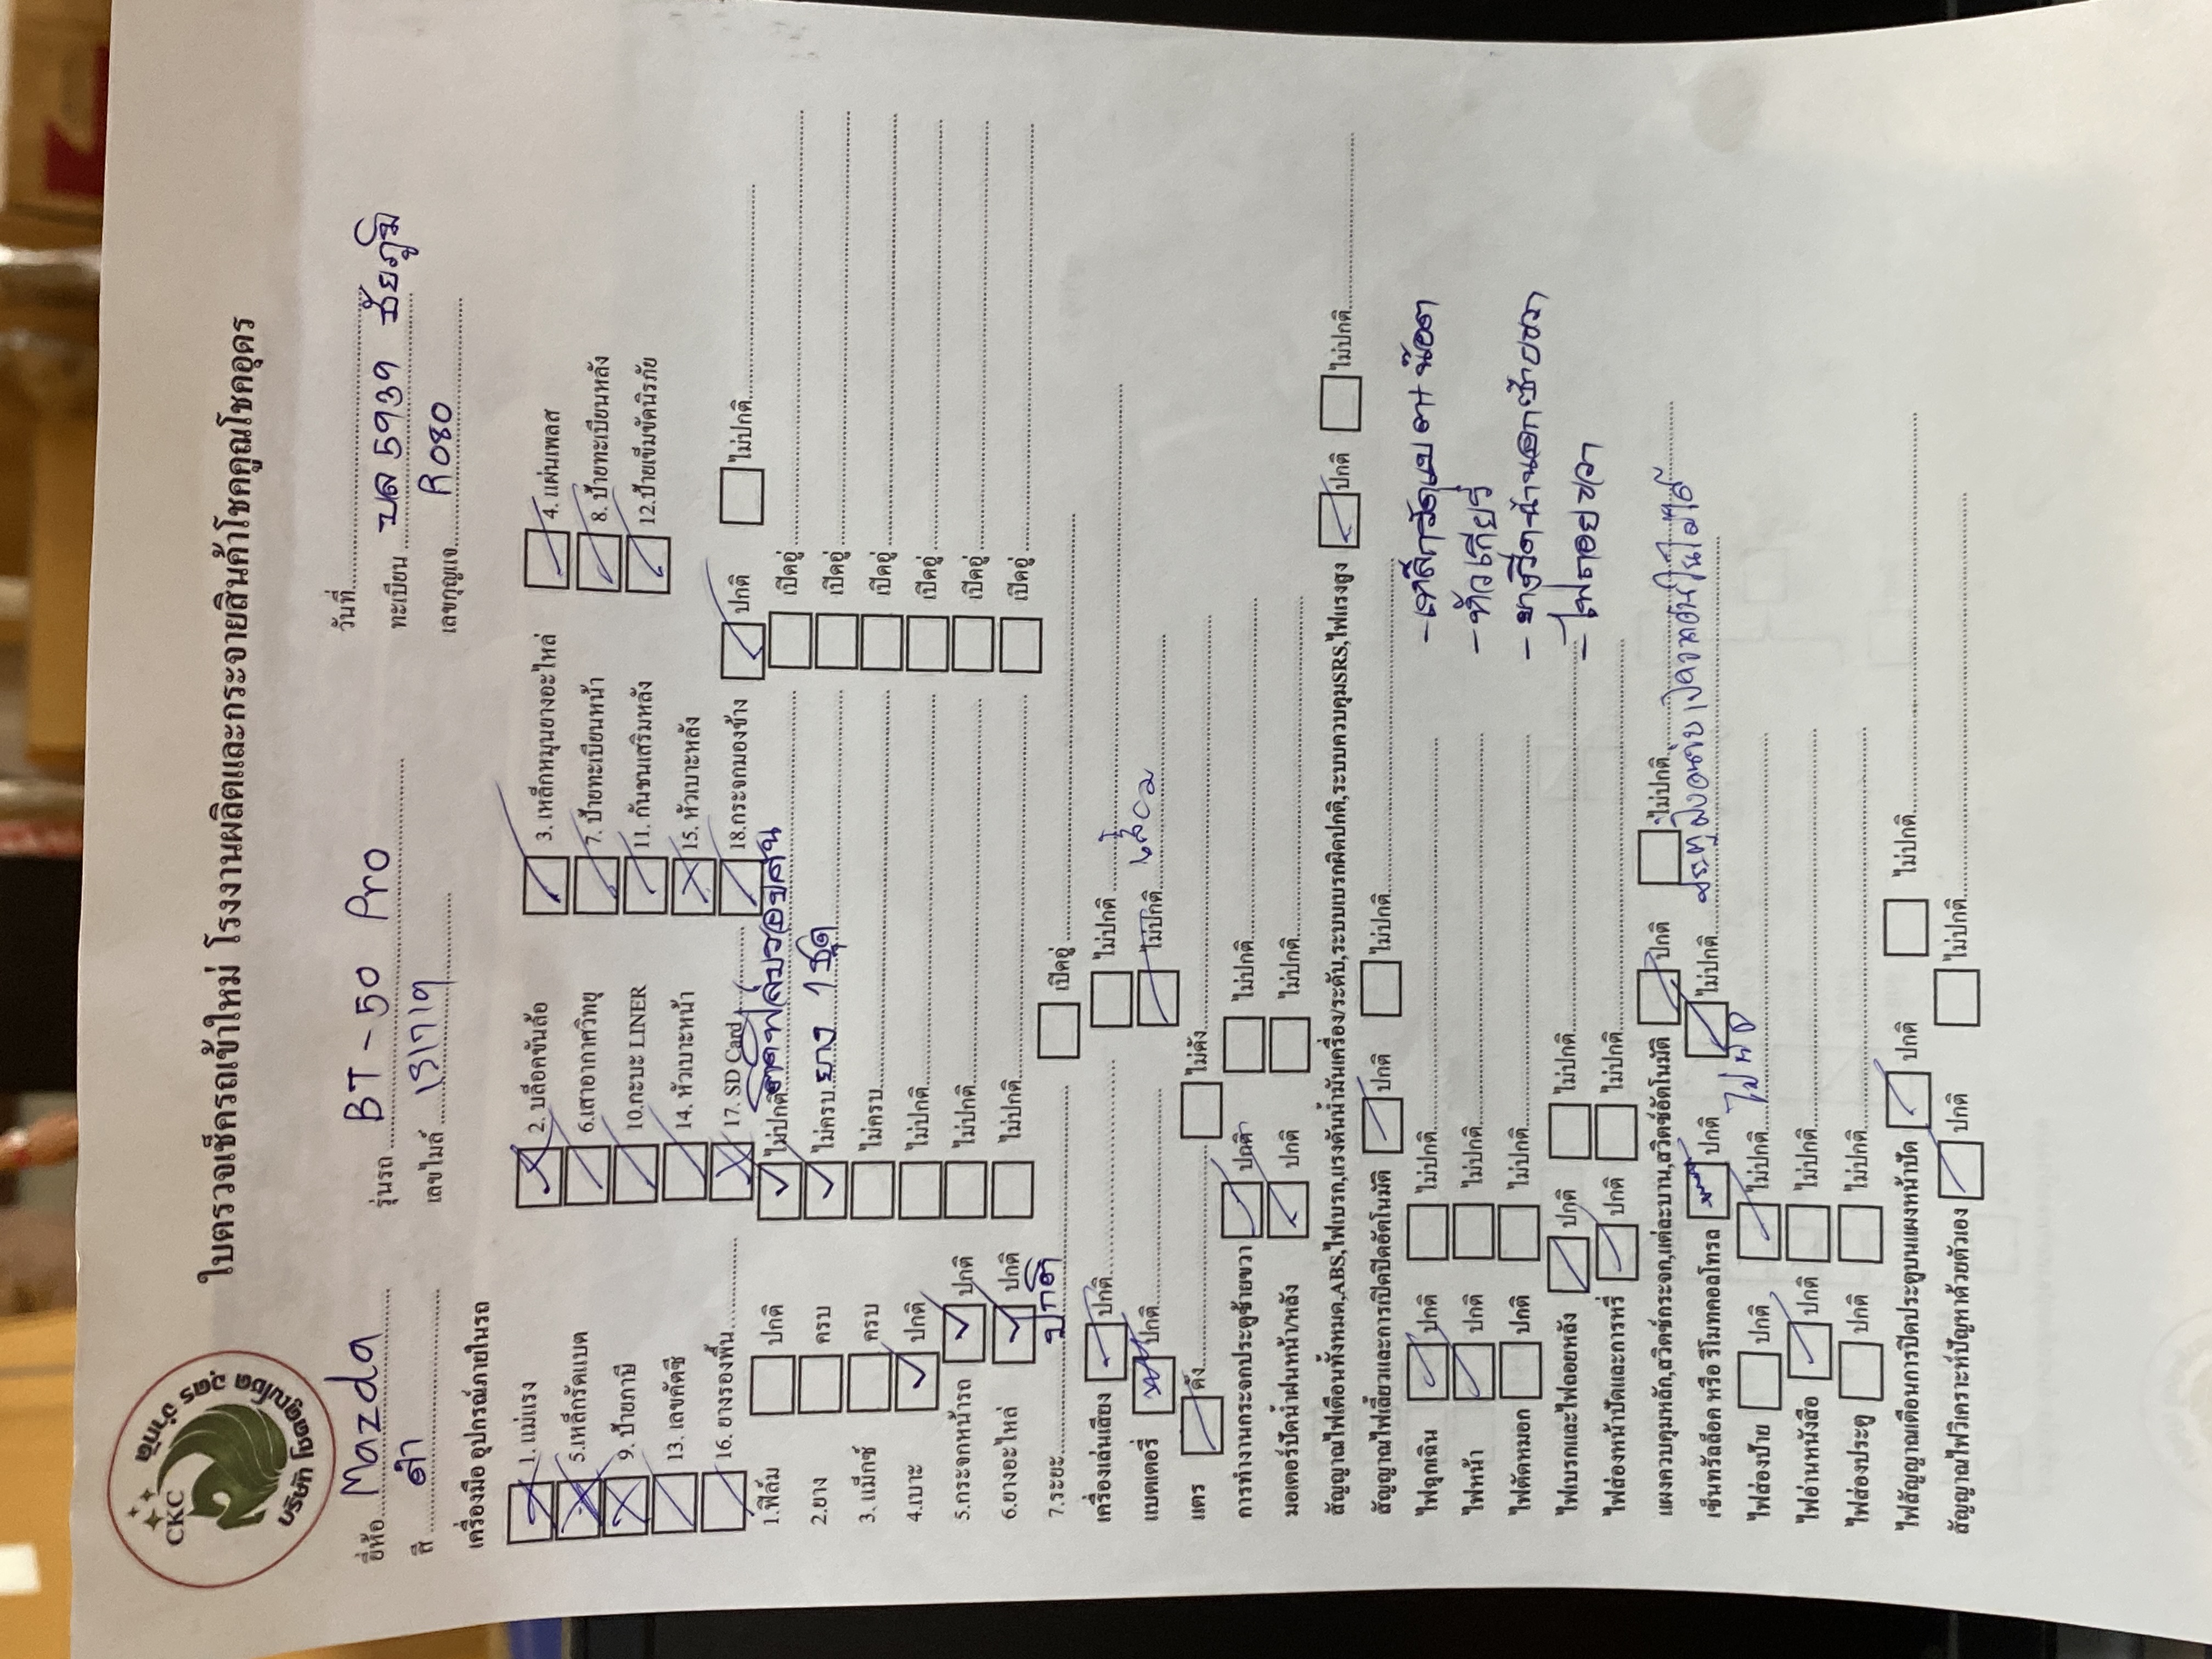 CKC
บริษัท โชคคูณโชค อุดร จำกัด
ใบตรวจเช็ครถเข้าใหม่ โรงงานผลิตและกระจายสินค้าโชคคูณโชคอุดร
วันที่
ยี่ห้อ Mazda รุ่นรถ BT-50 Pro ทะเบียน บล 5939 ชัยภูมิ
สี ดำ เลขไมล์ 131719 เลขกุญแจ R080
เครื่องมือ อุปกรณ์ภายในรถ
1. แม่แรง 2. บล็อคขันล้อ 3. เหล็กหมุนยางอะไหล่ 4. แผ่นเพลส
5.เหล็กรัดแบต 6.เสาอากาศวิทยุ 7. ป้ายทะเบียนหน้า 8. ป้ายทะเบียนหลัง
9. ป้ายภาษี 10.กะบะ LINER 11. กันชนเสริมหลัง 12.ป้ายเข็มขัดนิรภัย
13. เลขคัตซี 14. หัวเบาะหน้า 15. หัวเบาะหลัง
16. ยางรองพื้น 17. SD Card 18.กระจกมองข้าง ปกติ ไม่ปกติ
1.ฟิล์ม ปกติ ไม่ปกติ เปิดอยู่
2.ยาง ครบ ไม่ครบ ยาง 1 ชุด เปิดอยู่
3. แม็กซ์ ครบ ไม่ครบ เปิดอยู่
4.เบาะ ปกติ ไม่ปกติ เปิดอยู่
5.กระจกหน้ารถ ปกติ ไม่ปกติ เปิดอยู่
6.ยางอะไหล่ ปกติ ไม่ปกติ เปิดอยู่
7.ระยะ ปกติ เปิดอยู่
เครื่องเล่นเสียง ปกติ ไม่ปกติ
แบตเตอรี่ ปกติ ไม่ปกติ
แตร ดัง ไม่ดัง
การทำงานกระจกประตูซ้ายขวา ปกติ ไม่ปกติ
มอเตอร์ปัดน้ำฝนหน้า/หลัง ปกติ ไม่ปกติ
สัญญาณไฟเตือนทั้งหมด,ABS,ไฟเบรก,แรงดันน้ำมันเครื่อง/ระดับ,ระบบเบรกผิดปกติ,ระบบควบคุมSRS,ไฟแรงสูง ปกติ ไม่ปกติ
สัญญาณไฟเลี้ยวและการเปิดปิดอัตโนมัติ ปกติ ไม่ปกติ
ไฟฉุกเฉิน ปกติ ไม่ปกติ - เหล็กรัดแบต
ไฟหน้า ปกติ ไม่ปกติ - หัวเกียร์
ไฟตัดหมอก ปกติ ไม่ปกติ
ไฟเบรกและไฟถอยหลัง ปกติ ไม่ปกติ - ไฟถอยขวา
ไฟส่องหน้าปัดและการหรี่ ปกติ ไม่ปกติ
แผงควบคุมหลัก,สวิตช์กระจก,แต่ละบาน,สวิตช์อัตโนมัติ ปกติ ไม่ปกติ
เซ็นทรัลล็อค หรือ รีโมทคอลโทรล ปกติ ไม่ปกติ
ไฟส่องป้าย ปกติ ไม่ปกติ
ไฟอ่านหนังสือ ปกติ ไม่ปกติ
ไฟส่องประตู ปกติ ไม่ปกติ
ไฟสัญญาณเตือนการปิดประตูบนแผงหน้าปัด ปกติ ไม่ปกติ
สัญญาณไฟวิเคราะห์ปัญหาด้วยตัวเอง ปกติ ไม่ปกติ